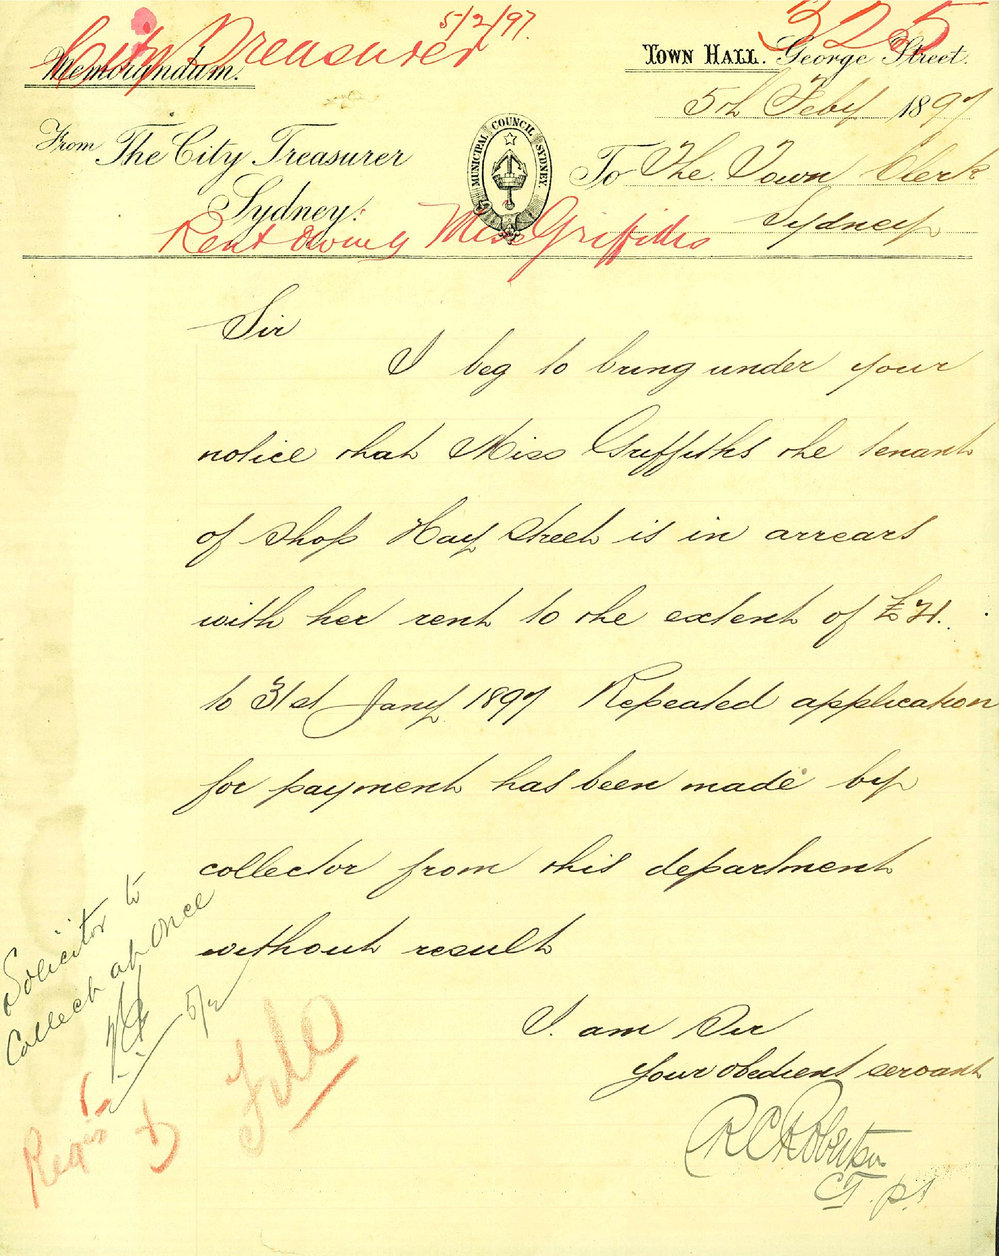 City Treasurer 5/2/97. 325
Memorandum.
TOWN HALL. George Street.
5th Feby 1897
From The City Treasurer
Sydney.
MUNICIPAL COUNCIL SYDNEY.
To The Town Clerk
Sydney
Rent owing Miss Griffiths
Sir
I beg to bring under your
notice that Miss Griffiths the tenant
of shop Hay Street is in arrears
with her rent to the extent of
to 31st Jany 1897 Repeated application
for payment has been made by
collector from this department
without result
I am Sir
Your obedient servant
R C Robertson
Solicitor to
Collect at Once
5/2